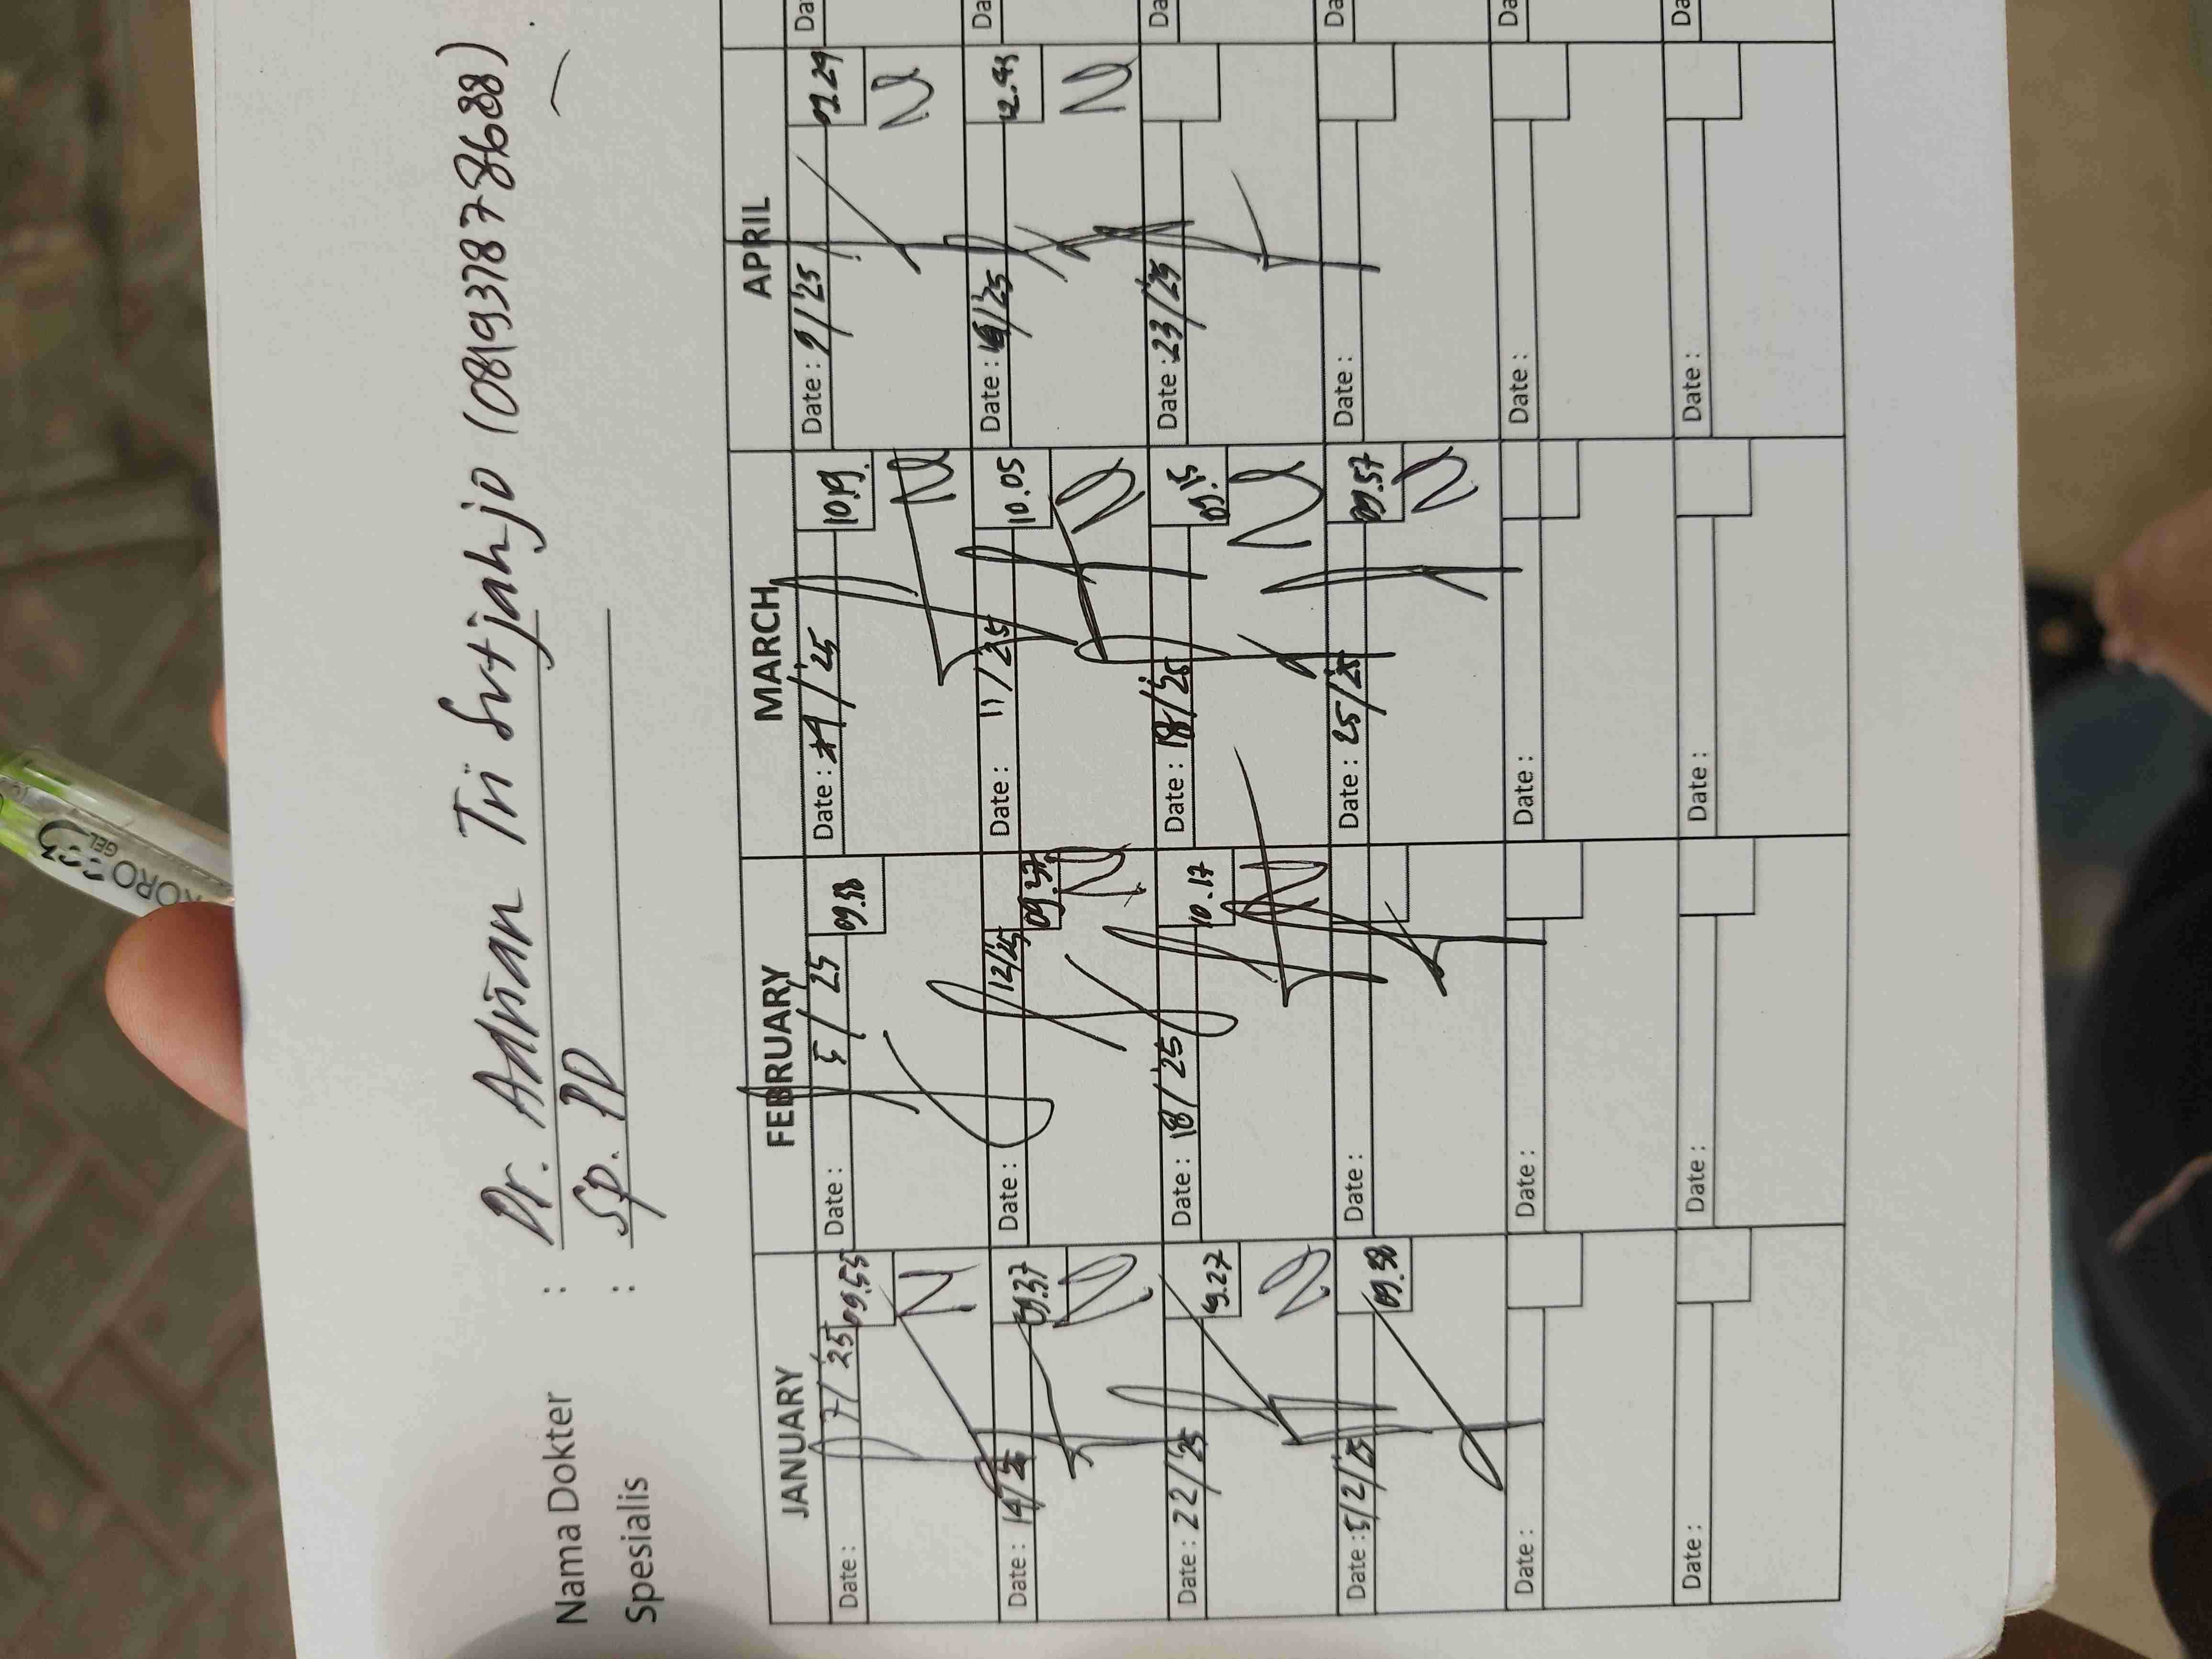 Nama Dokter : Dr. Adrian Tri Sutjahjo (081937878688)
Spesialis : Sp. PD
JANUARY FEBRUARY MARCH APRIL
Date : 7/25 09.55 Date : 5/25 09.38 Date : 4/25 10.19. Date : 9/25 Da
Date : 14/25 09.37 Date : 12/25 09.37 Date : 11/25 10.05 Date : 16/25 Da
Date : 22/25 9.27 Date : 18/25 10.17 Date : 18/25 09.15 Date : 23/25 Da
Date : 5/2/25 09.38 Date : Date : 25/25 09.57 Date : Da
Date : Date : Date : Date : Da
Date : Date : Date : Date : Da
KORO
GEL